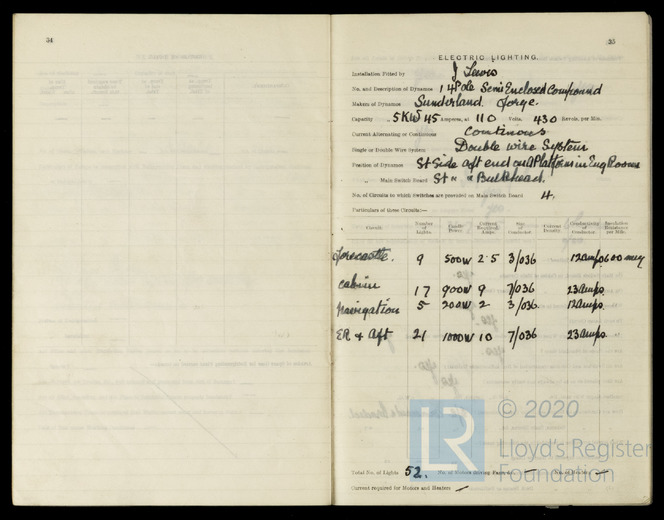 34
35
ELECTRIC LIGHTING.
Installation Fitted by J Lewis
No. and Description of Dynamos 1 4 Pole Semi Enclosed Compound
Makers of Dynamos Sunderland Forge.
Capacity 5KW 45 Amperes, at 110 Volts, 430 Revols. per Min.
Current Alternating or Continuous Continous
Single or Double Wire System Double wire System
Position of Dynamos St Side aft end on Platform in Eng Room
„ Main Switch Board St " " Bulkhead.
No. of Circuits to which Switches are provided on Main Switch Board 4.
Particulars of these Circuits:—
Circuit. Number of Lights. Candle Power. Current Required. Amps. Size of Conductor. Current Density. Conductivity of Conductor. Insulation Resistance per Mile.
Forecastle. 9 500W 2·5 3/036 12amps 600 meg
Cabin 17 900W 9 7/036 23amps.
Navigation 5 200W 2 3/036 12amps.
ER & Aft 21 1000W 10 7/036 23amps.
Total No. of Lights 52. No. of Motors driving Fans, &c. — No. of Heaters —
Current required for Motors and Heaters —
LR © 2020
Lloyd's Register
Foundation